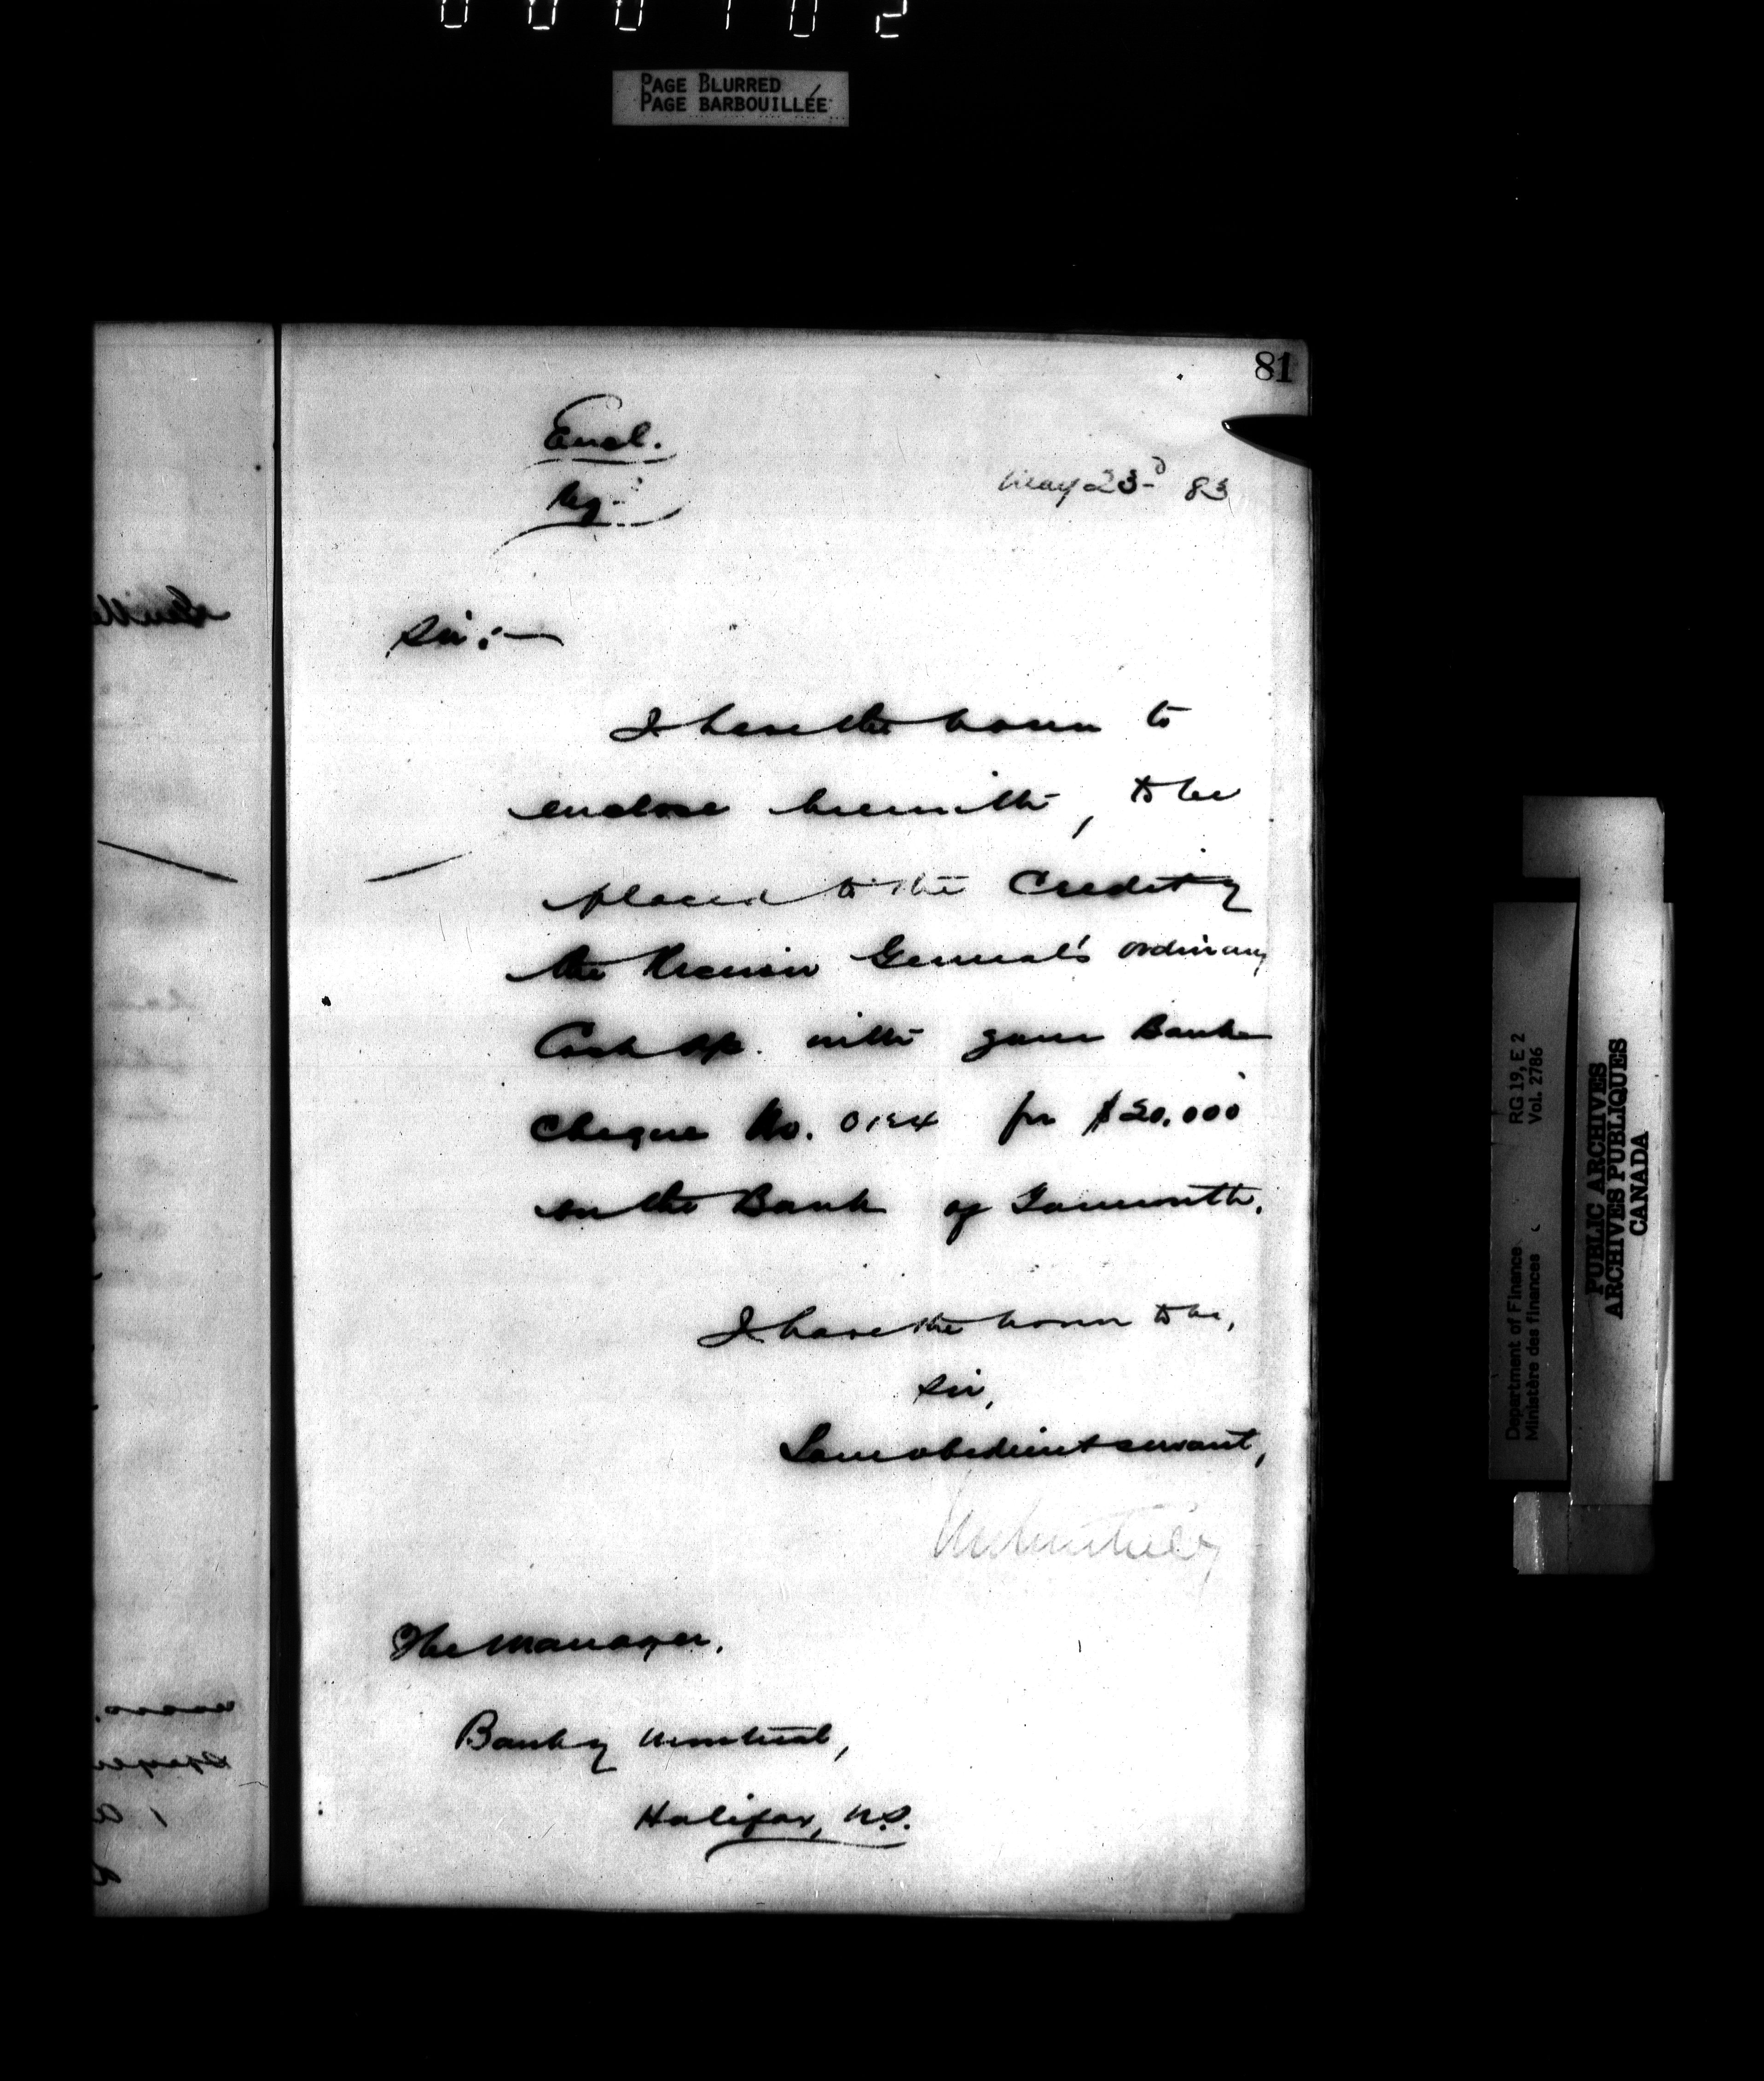 PAGE BLURRED
PAGE BARBOUILLÉE
81
Encl.
Reg.
May 23d 83
Sir:—
I have the honor to
enclose herewith, to be
placed to the Credit of
the Receiver General's ordinary
Cash a/c. with your Bank
Cheque No. 0124 for $20,000
on the Bank of Yarmouth.
I have the honor to be,
Sir,
Your obedient servant,
The Manager,
Bank of Montreal,
Halifax, N.S.
Department of Finance
Ministère des finances
RG 19, E 2
Vol. 2786
PUBLIC ARCHIVES
ARCHIVES PUBLIQUES
CANADA